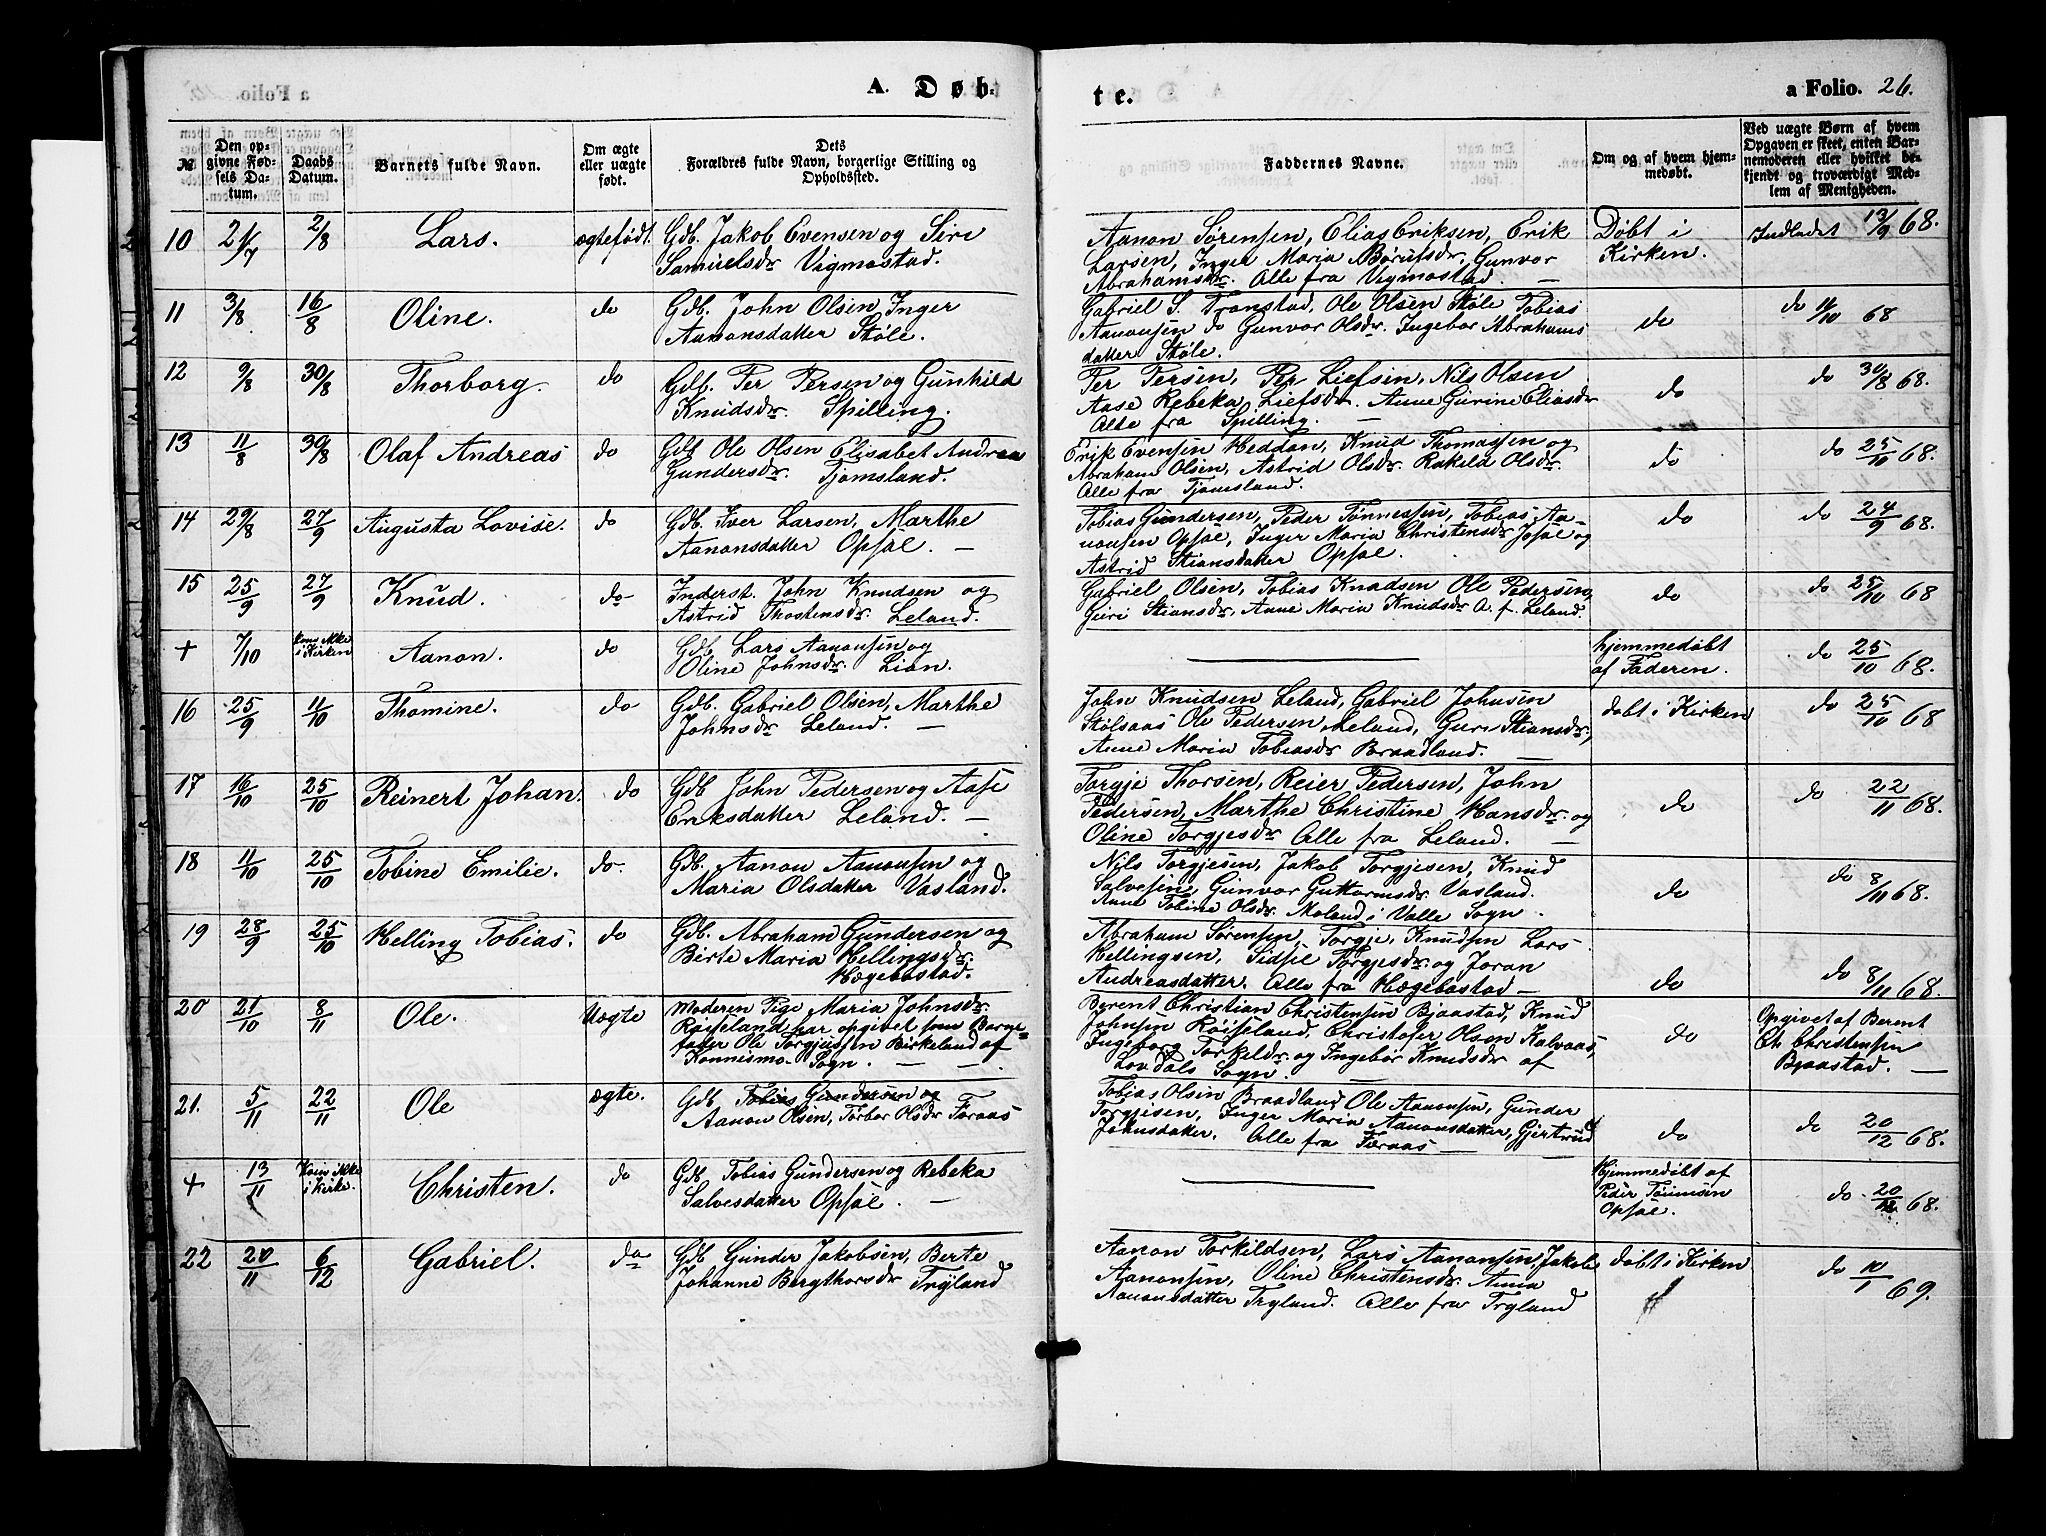 A. Døb-
te.
a Folio. 26.
№
Den op-
givne Fød-
sels Da-
tum.
Daabs
Datum.
Barnets fulde Navn.
Om ægte
eller uægte
født.
Dets
Forældres fulde Navn, borgerlige Stilling og
Opholdssted.
Faddernes Navne.
Om og af hvem hjem-
medøbt.
Ved uægte Børn af hvem
Opgaven er skeet, enten Bar-
nemoderen eller hvilket be-
kjendt og troværdigt Med-
lem af Menigheden.
10 21/7 2/8 Lars. ægtefødt. Gdb. Jakob Evensen og Siri
Samuelsdr Vigmostad.
Aanon Sørensen, Elias Eriksen, Erik
Larsen, Inger Maria Børufsdr, Gunvor
Abrahamsdr. Alle fra Vigmostad. —
Døbt i
Kirken.
Indledet 13/9 68.
11 3/8 16/8 Oline. do Gdb. John Olsen, Inger
Aanonsdatter Støle.
Gabriel S. Tronstad, Ole Olsen Støle Tobias
Aanonsen do Gunvor Olsdr, Ingebor Abrahams
datter Støle.
do
do 11/10 68
12 9/8 30/8 Thorborg. do Gdb. Per Persen og Gunhild
Knudsdr. Spilling.
Per Persen, Per Liefsen, Nils Olsen
Aase Rebeka Liefsdr. Anne Gurine Eliasdr
Alle fra Spilling. —
do
do 30/8 68.
13 11/8 30/8 Olaf Andreas do Gdb Ole Olsen Elisabet Andrea
Gundersdr. Tjomsland.
Erik Evensen Heddan, Knud Thomassen og
Abraham Olsen, Astrid Olsdr. Rakeld Olsdr.
Alle fra Tjomsland.
do
do 25/10 68.
14 29/8 27/9 Augusta Lovise. do Gdb. Iver Larsen, Marthe
Aanonsdatter Opsal. —
Tobias Gundersen, Peder Tønnessen, Tobias Aa-
nonsen Opsal, Inger Maria Christensdr Opsal og
Astrid Stiansdatter Opsal.
do
do 24/9 68.
15 25/9 27/9 Knud. do Inderst. John Knudsen og
Astrid Thostensdr. Leland.
Gabriel Olsen, Tobias Knudsen Ole Pedersen,
Guri Stiansdr, Anne Maria Knudsdr A. f. Leland.
do
do 25/10 68
+ 7/10 kom ikke
i Kirken Aanon. do Gdb. Lars Aanonsen og
Oline Johnsdr. Lian.
hjemmedøbt
af Faderen.
do 25/10 68.
16 25/9 11/10 Thomine. do Gdb. Gabriel Olsen, Marthe
Johnsdr Leland. —
John Knudsen Leland, Gabriel Johnsen
Stølsaas Ole Pedersen Leland, Guri Stiansdr,
Anne Maria Tobiasdr Braadland.
døbt i Kirken
do 25/10 68
17 16/10 25/10 Reinert Johan. do Gdb John Pedersen og Aase
Eriksdatter Leland. —
Torgje Thorsen, Reier Pedersen, John
Pedersen, Marthe Christine Hansdr. og
Oline Torgjesdr Alle fra Leland. —
do
do 22/11 68.
18 11/10 25/10 Tobine Emilie. do. Gdb. Aanon Aanonsen og
Maria Olsdatter Vasland.
Nils Torgjesen, Jakob Torgjesen, Knud
Salvesen, Gunvor Guttormsdr Vasland.
Anne Tobine Olsdr. Moland i Valle Sogn.
do
do 8/11 68.
19 28/9 25/10 Helling Tobias. do Gdb. Abraham Gundersen og
Birte Maria Hellingsdr.
Hægebostad.
Abraham Sørensen, Torgje Knudsen Lars
Hellingsen, Sidsel Torgjesdr og Joran
Andreasdatter. Alle fra Hægebostad —
do
do 8/11 68.
20 21/10 8/11 Ole. Uægte Moderen Pige Maria Johnsdr.
Røiseland har opgivet som Barne-
fader Ole Torgjussen Birkeland af
Konnismo Sogn. — —
Berent Christian Christensen Bjaastad, Knud
Johnsen Røiseland, Christofer Olsen Kalvaas,
Ingeborg Torkeldr. og Ingebor Knudsdr af
Lovdals Sogn. —
do
Opgivet af Berent
Ch Christensen
Bjaastad. —
21. 5/11 22/11 Ole ægte. Gdb Tobias Gundersen og
Aanon Olsen, Tørber Olsdr Foraas
Tobias Olsen Braadland Ole Aanonsen, Gunder
Torgjesen, Inger Maria Aanonsdatter, Gjertrud
Johnsdatter. Alle fra Foraas —
do
do 20/12 68.
+ 13/11 Kom ikke
i Kirke. Christen. do Gdb Tobias Gundersen og Rebeka
Salvesdatter Opsal. —
Hjemmedøbt af
Peder Tønnesen
Opsal.
do 20/12 68.
22 20/11 6/12 Gabriel. do Gdb Gunder Jakobsen, Berte
Johanne Bergthorsdr Tryland
Aanon Torkildsen, Lars Aanonsen, Jakob
Aanonsen, Oline Christensdr. Anna
Aanonsdatter Tryland. Alle fra Tryland
døbt i Kirken
do 10/1 69.